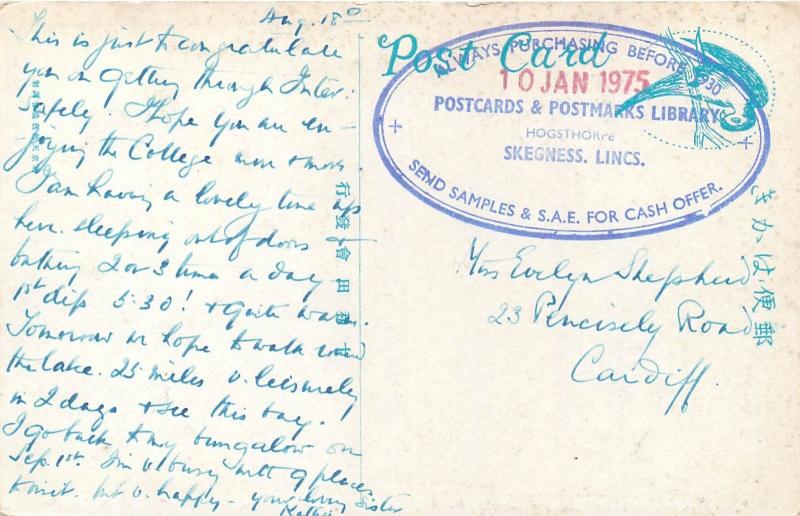 Aug. 18th
This is just to congratulate
you on getting through Inter:
safely. I hope you are en-
joying the College more & more.
I am having a lovely time up
here. sleeping out of doors &
bathing 2 or 3 times a day
1st dip 5:30! & quite warm.
Tomorrow we hope to walk round
the lake. 25 miles v. leisurely
in 2 days & see this bay.
I go back to my bungalow on
Sep. 1st. I'm v. busy with 9 places
to visit. but v. happy - your loving Sister
Post Card
ALWAYS PURCHASING BEFORE 1930
10 JAN 1975
POSTCARDS & POSTMARKS LIBRARY
HOGSTHORPE
SKEGNESS. LINCS.
SEND SAMPLES & S.A.E. FOR CASH OFFER.
Miss Evelyn Shepherd
23 Pencisely Road
Cardiff.
きかは便郵
行發會田